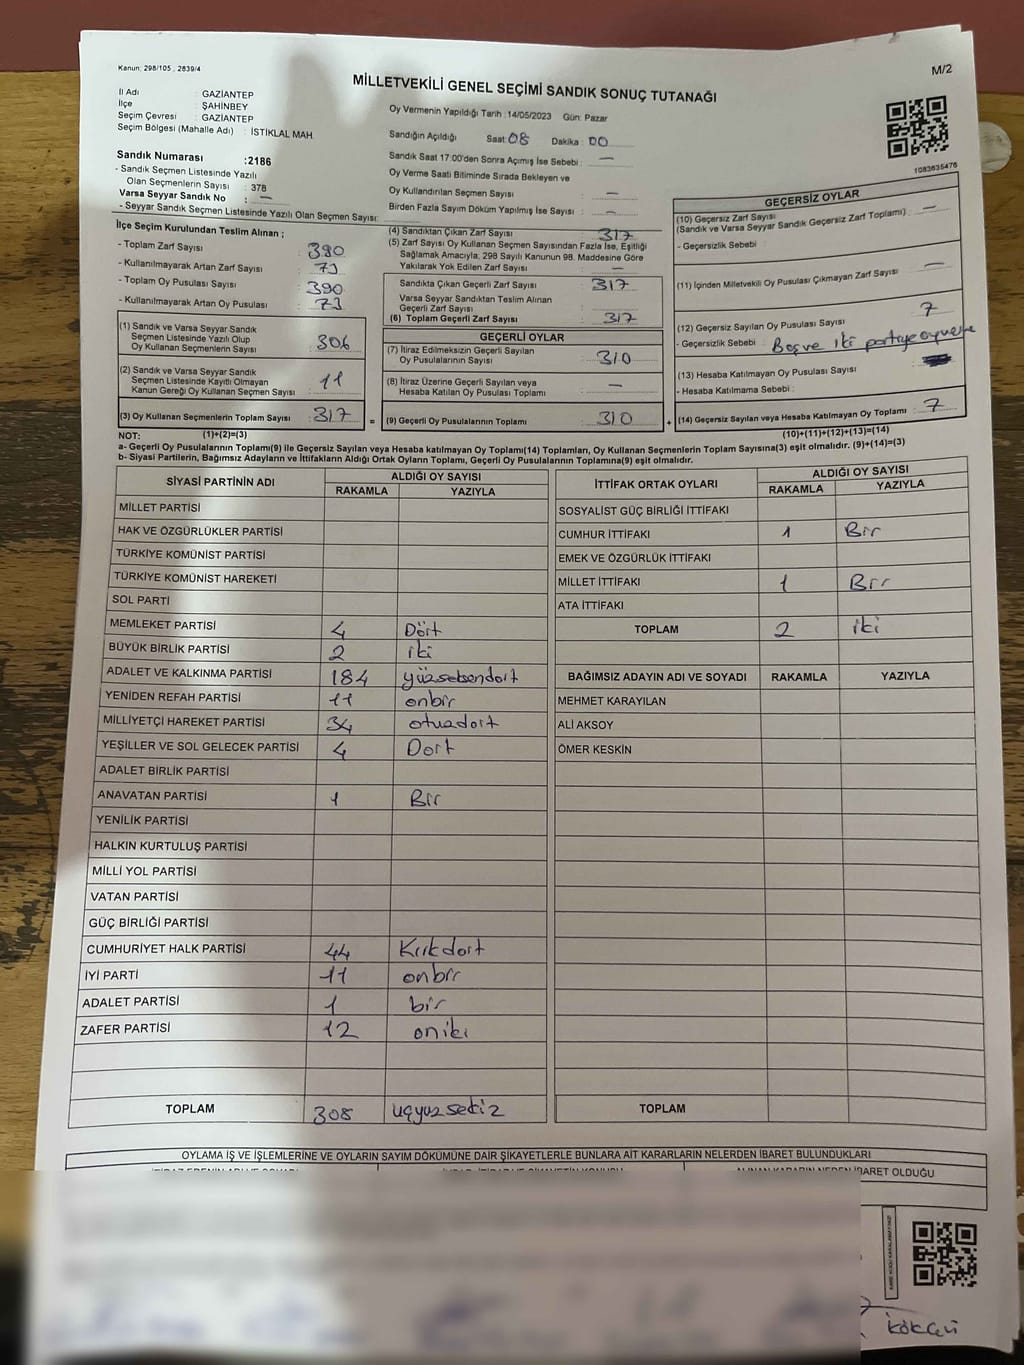 Kanun; 298/105 , 2839/4
M/2
MİLLETVEKİLİ GENEL SEÇİMİ SANDIK SONUÇ TUTANAĞI
İl Adı : GAZİANTEP
İlçe : ŞAHİNBEY
Seçim Çevresi : GAZİANTEP
Seçim Bölgesi (Mahalle Adı) : İSTİKLAL MAH.
Sandık Numarası :2186
- Sandık Seçmen Listesinde Yazılı
Olan Seçmenlerin Sayısı : 378
Varsa Seyyar Sandık No : —
- Seyyar Sandık Seçmen Listesinde Yazılı Olan Seçmen Sayısı:
Oy Vermenin Yapıldığı Tarih :14/05/2023 Gün: Pazar
Sandığın Açıldığı Saat: 08 Dakika : 00
Sandık Saat 17:00'den Sonra Açılmış İse Sebebi : —
Oy Verme Saati Bitiminde Sırada Bekleyen ve
Oy Kullandırılan Seçmen Sayısı : —
Birden Fazla Sayım Döküm Yapılmış İse Sayısı : —
1083635476
İlçe Seçim Kurulundan Teslim Alınan ;
- Toplam Zarf Sayısı : 390
- Kullanılmayarak Artan Zarf Sayısı : 73
- Toplam Oy Pusulası Sayısı : 390
- Kullanılmayarak Artan Oy Pusulası : 73
(1) Sandık ve Varsa Seyyar Sandık
Seçmen Listesinde Yazılı Olup
Oy Kullanan Seçmenlerin Sayısı : 306
(2) Sandık ve Varsa Seyyar Sandık
Seçmen Listesinde Kayıtlı Olmayan
Kanun Gereği Oy Kullanan Seçmen Sayısı : 11
(3) Oy Kullanan Seçmenlerin Toplam Sayısı : 317
(4) Sandıktan Çıkan Zarf Sayısı : 317
(5) Zarf Sayısı Oy Kullanan Seçmen Sayısından Fazla İse, Eşitliği
Sağlamak Amacıyla; 298 Sayılı Kanunun 98. Maddesine Göre
Yakılarak Yok Edilen Zarf Sayısı : —
Sandıkta Çıkan Geçerli Zarf Sayısı : 317
Varsa Seyyar Sandıktan Teslim Alınan
Geçerli Zarf Sayısı :
(6) Toplam Geçerli Zarf Sayısı : 317
GEÇERLİ OYLAR
(7) İtiraz Edilmeksizin Geçerli Sayılan
Oy Pusulalarının Sayısı : 310
(8) İtiraz Üzerine Geçerli Sayılan veya
Hesaba Katılan Oy Pusulası Toplamı : —
= (9) Geçerli Oy Pusulalarının Toplamı : 310
GEÇERSİZ OYLAR
(10) Geçersiz Zarf Sayısı
(Sandık ve Varsa Seyyar Sandık Geçersiz Zarf Toplamı) : —
- Geçersizlik Sebebi :
(11) İçinden Milletvekili Oy Pusulası Çıkmayan Zarf Sayısı : —
(12) Geçersiz Sayılan Oy Pusulası Sayısı : 7
- Geçersizlik Sebebi : Boş ve iki partiye oy verme
(13) Hesaba Katılmayan Oy Pusulası Sayısı :
- Hesaba Katılmama Sebebi :
+ (14) Geçersiz Sayılan veya Hesaba Katılmayan Oy Toplamı : 7
NOT: (1)+(2)=(3)
(10)+(11)+(12)+(13)=(14)
a- Geçerli Oy Pusulalarının Toplamı(9) ile Geçersiz Sayılan veya Hesaba katılmayan Oy Toplamı(14) Toplamları, Oy Kullanan Seçmenlerin Toplam Sayısına(3) eşit olmalıdır. (9)+(14)=(3)
b- Siyasi Partilerin, Bağımsız Adayların ve İttifakların Aldığı Ortak Oyların Toplamı, Geçerli Oy Pusulalarının Toplamına(9) eşit olmalıdır.
SİYASİ PARTİNİN ADI ALDIĞI OY SAYISI
RAKAMLA YAZIYLA
MİLLET PARTİSİ
HAK VE ÖZGÜRLÜKLER PARTİSİ
TÜRKİYE KOMÜNİST PARTİSİ
TÜRKİYE KOMÜNİST HAREKETİ
SOL PARTİ
MEMLEKET PARTİSİ 4 Dört
BÜYÜK BİRLİK PARTİSİ 2 iki
ADALET VE KALKINMA PARTİSİ 184 yüzseksendort
YENİDEN REFAH PARTİSİ 11 onbir
MİLLİYETÇİ HAREKET PARTİSİ 34 otuzdort
YEŞİLLER VE SOL GELECEK PARTİSİ 4 Dort
ADALET BİRLİK PARTİSİ
ANAVATAN PARTİSİ 1 Bir
YENİLİK PARTİSİ
HALKIN KURTULUŞ PARTİSİ
MİLLİ YOL PARTİSİ
VATAN PARTİSİ
GÜÇ BİRLİĞİ PARTİSİ
CUMHURİYET HALK PARTİSİ 44 Kırkdort
İYİ PARTİ 11 onbir
ADALET PARTİSİ 1 bir
ZAFER PARTİSİ 12 oniki
TOPLAM 308 uçyuzsekiz
İTTİFAK ORTAK OYLARI ALDIĞI OY SAYISI
RAKAMLA YAZIYLA
SOSYALİST GÜÇ BİRLİĞİ İTTİFAKI
CUMHUR İTTİFAKI 1 Bir
EMEK VE ÖZGÜRLÜK İTTİFAKI
MİLLET İTTİFAKI 1 Bir
ATA İTTİFAKI
TOPLAM 2 iki
BAĞIMSIZ ADAYIN ADI VE SOYADI RAKAMLA YAZIYLA
MEHMET KARAYILAN
ALİ AKSOY
ÖMER KESKİN
TOPLAM
OYLAMA İŞ VE İŞLEMLERİNE VE OYLARIN SAYIM DÖKÜMÜNE DAİR ŞİKAYETLERLE BUNLARA AİT KARARLARIN NELERDEN İBARET BULUNDUKLARI
ALINAN KARARIN NEDEN İBARET OLDUĞU